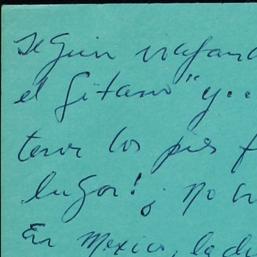 Según viajand
el Gitano" y..
tener los pies f
lugar! ¿ No
En Mexico, la di